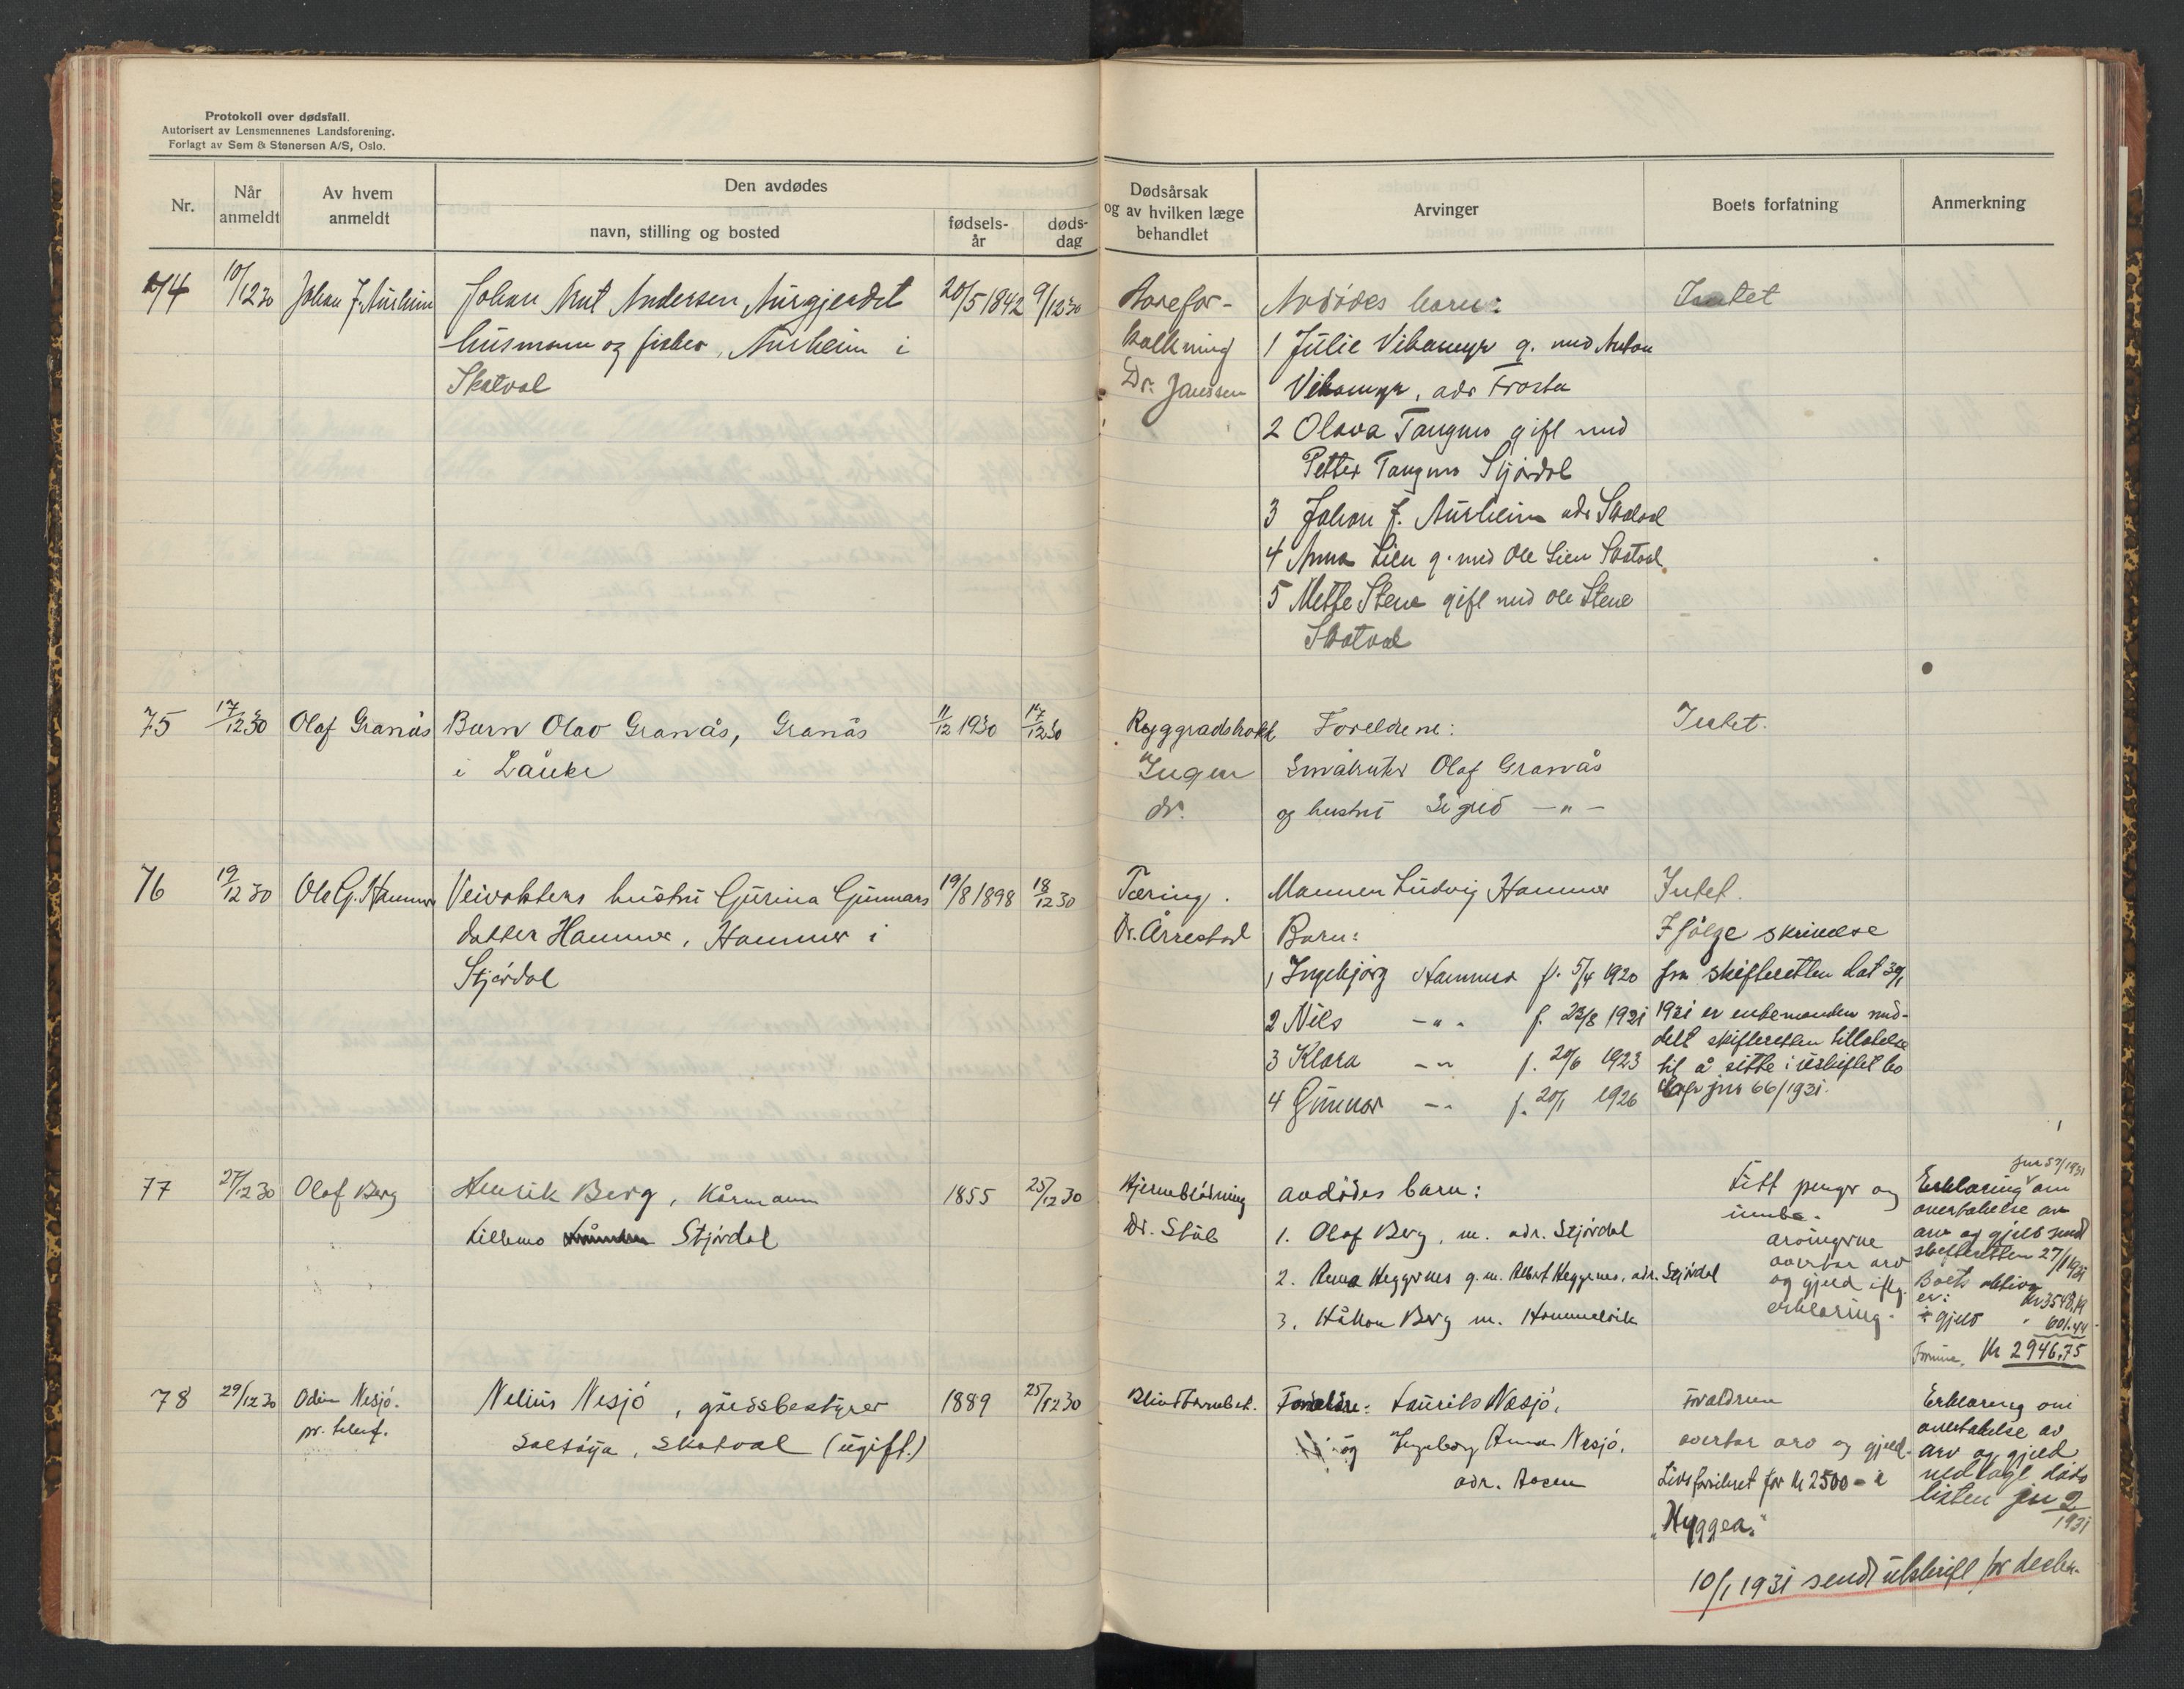 Protokoll over dødsfall.
Autorisert av Lensmennenes Landsforening.
Forlagt av Sem & Stenersen A/S, Oslo.
Nr.
Når anmeldt
Av hvem anmeldt
Den avdødes
navn, stilling og bosted
fødsels-år
døds-dag
Dødsårsak og av hvilken læge behandlet
Arvinger
Boets forfatning
Anmerkning
74 10/12 30 Johan J. Aurheim
Johan Arnt Andersen Aurgjerdet 20/5 1842 9/12 30
husmann og fisker, Aurheim i
Skatval
Arefor-
kalkning
Dr. Janssen
Avdødes barn:
1 Julie Vikamyr g. med Anton
Vikamyr, adr Frosta
2 Olava Tangmo gift med
Petter Tangmo Stjørdal
3 Johan J. Aurheim adr Skatval
4 Anna Lien g. med Ole Lien Skatval
5 Mette Stene gift med Ole Stene
Skatval
Intet
75 17/12 30 Olaf Granås
Barn Olav Granås, Granås 11/12 1930 17/12 30
i Lånke
Ryggradsbrokk
Ingen
dr.
Foreldrene:
Småbruker Olaf Granås
og hustru Sigrid — " —
Intet.
76 19/12 30 Ole G. Hammer
Veivokters hustru Gurina Gunnars 19/8 1898 18/12 30
datter Hammer, Hammer i
Stjørdal
Tæring.
Dr. Årrestad
Mannen Ludvig Hammer
Barn:
1 Ingebjørg Hammer f. 5/4 1920
2 Nils - " - f. 23/8 1921
3 Klara - " - f. 20/6 1923
4 Gunnar - " - f. 20/1 1926
Intet.
Ifølge skrivelse
fra skifteretten dat 30/1
1931 er enkemanden med-
delt skifteretten tillatelse
til å sitte i uskiftet bo
jnr 66/1931.
77 27/12 30 Olaf Berg
Henrik Berg, kårmann 1855 25/12 30
Lillemo Stjørdal
Hjerneblødning
Dr. Stub
avdødes barn:
1. Olaf Berg, m. adr. Stjørdal
2. Anna Heggernes g. m. Albert Heggernes, adr. Stjørdal
3. Håkon Berg m. Hommelvik
Litt penger og
innbo.
arvingerne
overtar arv
og gjeld iflg.
erklæring.
jnr 57/1931
Erklæring om
overtakelse av
arv og gjeld sendt
skifteretten 27/1 1931
Boets aktiva
er: Kr 3548,19
÷ gjeld " 601.44
Formue, Kr 2946,75
78 29/12 30 Odin Nesjø.
pr. telef.
Nelius Nesjø, gårdsbestyrer 1889 25/12 30
Saltøya, Skatval (ugift.)
Blindtarmbet.
Foreldre: Laurits Nesjø,
og Ingeborg Anna Nesjø,
adr. Aasen
Foreldrene
overtar arv og gjeld.
Livsforsikret for kr 2500 - i
"Hyggea."
Erklæring om
overtakelse av
arv og gjeld
vedlagt døds
listen jnr 2
1931
10/1 1931 sendt utskrift for